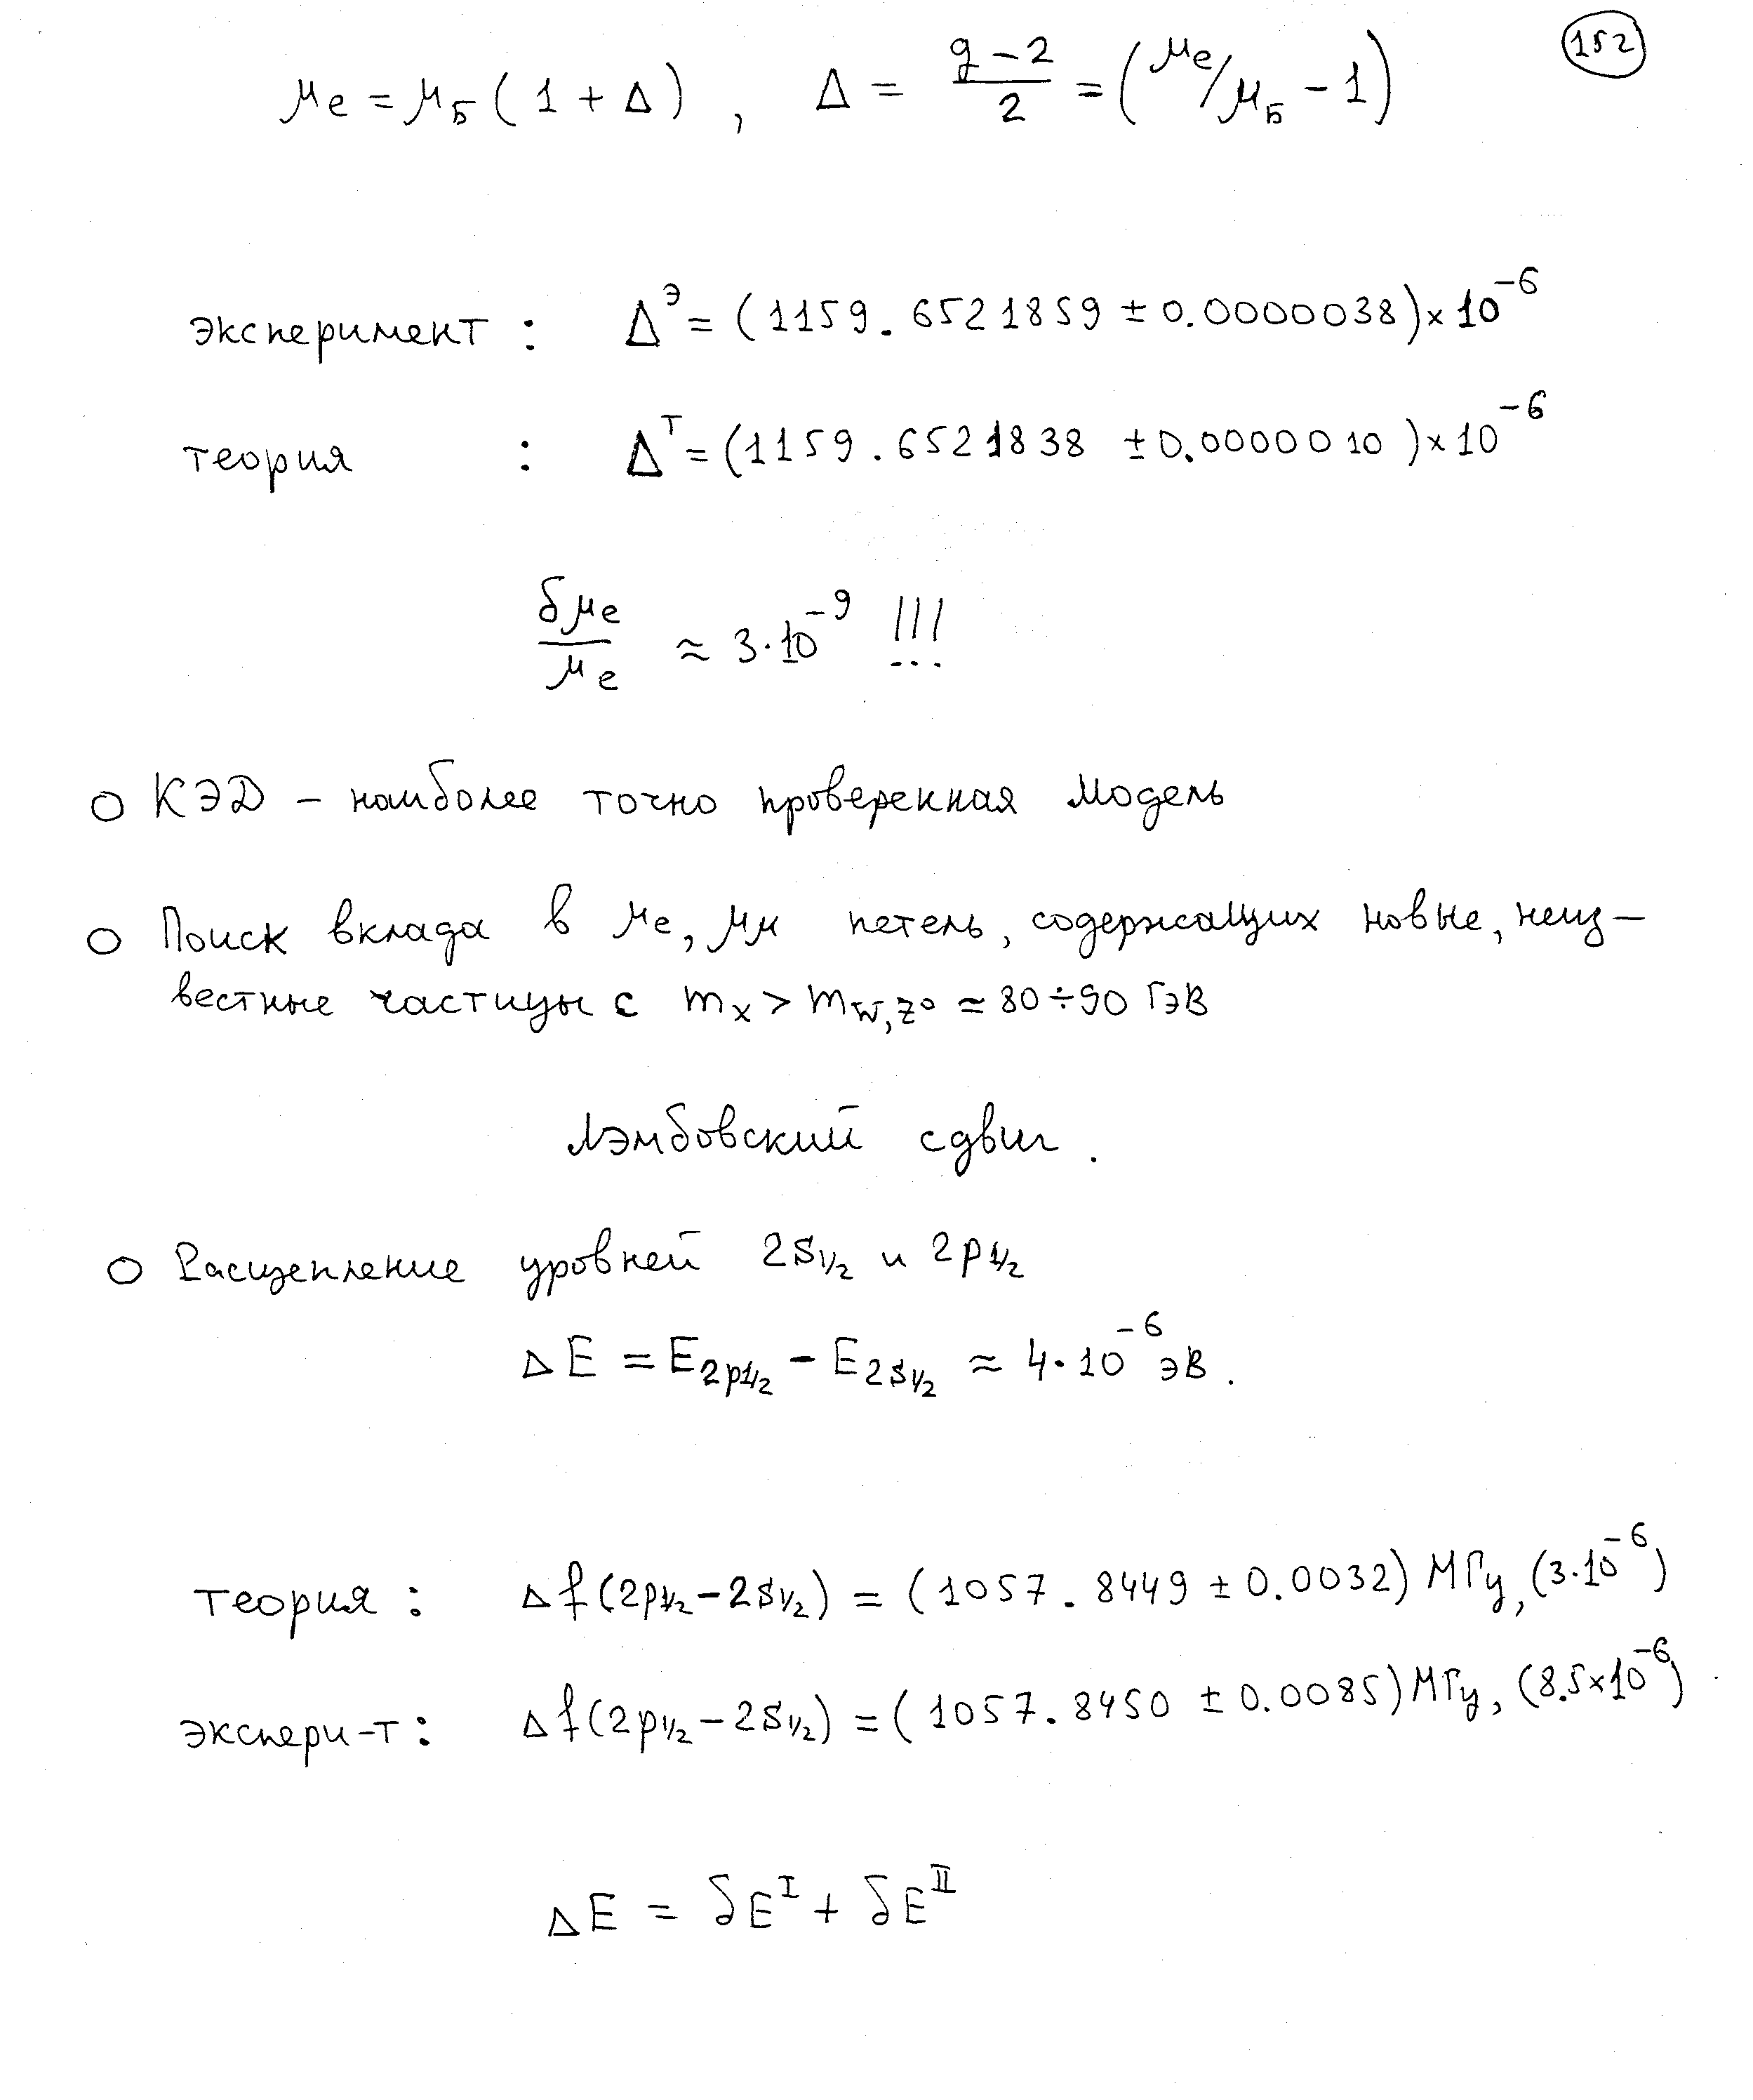 152
μe = μБ ( 1 + Δ ) , Δ = (g − 2)/2 = (μe/μБ − 1)
эксперимент : Δ^Э = (1159.6521859 ± 0.0000038) × 10^−6
теория : Δ^Т = (1159.6521838 ± 0.0000010) × 10^−6
δμe/μe ≈ 3·10^−9 !!!
○ КЭД – наиболее точно проверенная модель
○ Поиск вклада в μe, μμ петель, содержащих новые, неиз–
вестные частицы с mx > mW,Z⁰ ≈ 80÷90 ГэВ
Лэмбовский сдвиг.
○ Расщепление уровней 2S1/2 и 2p1/2
ΔE = E2p1/2 − E2S1/2 ≈ 4·10^−6 эВ.
теория : Δf(2p1/2 − 2S1/2) = (1057.8449 ± 0.0032) МГц, (3·10^−6)
экспери-т : Δf(2p1/2 − 2S1/2) = (1057.8450 ± 0.0085) МГц, (8.5×10^−6)
ΔE = δE^I + δE^II